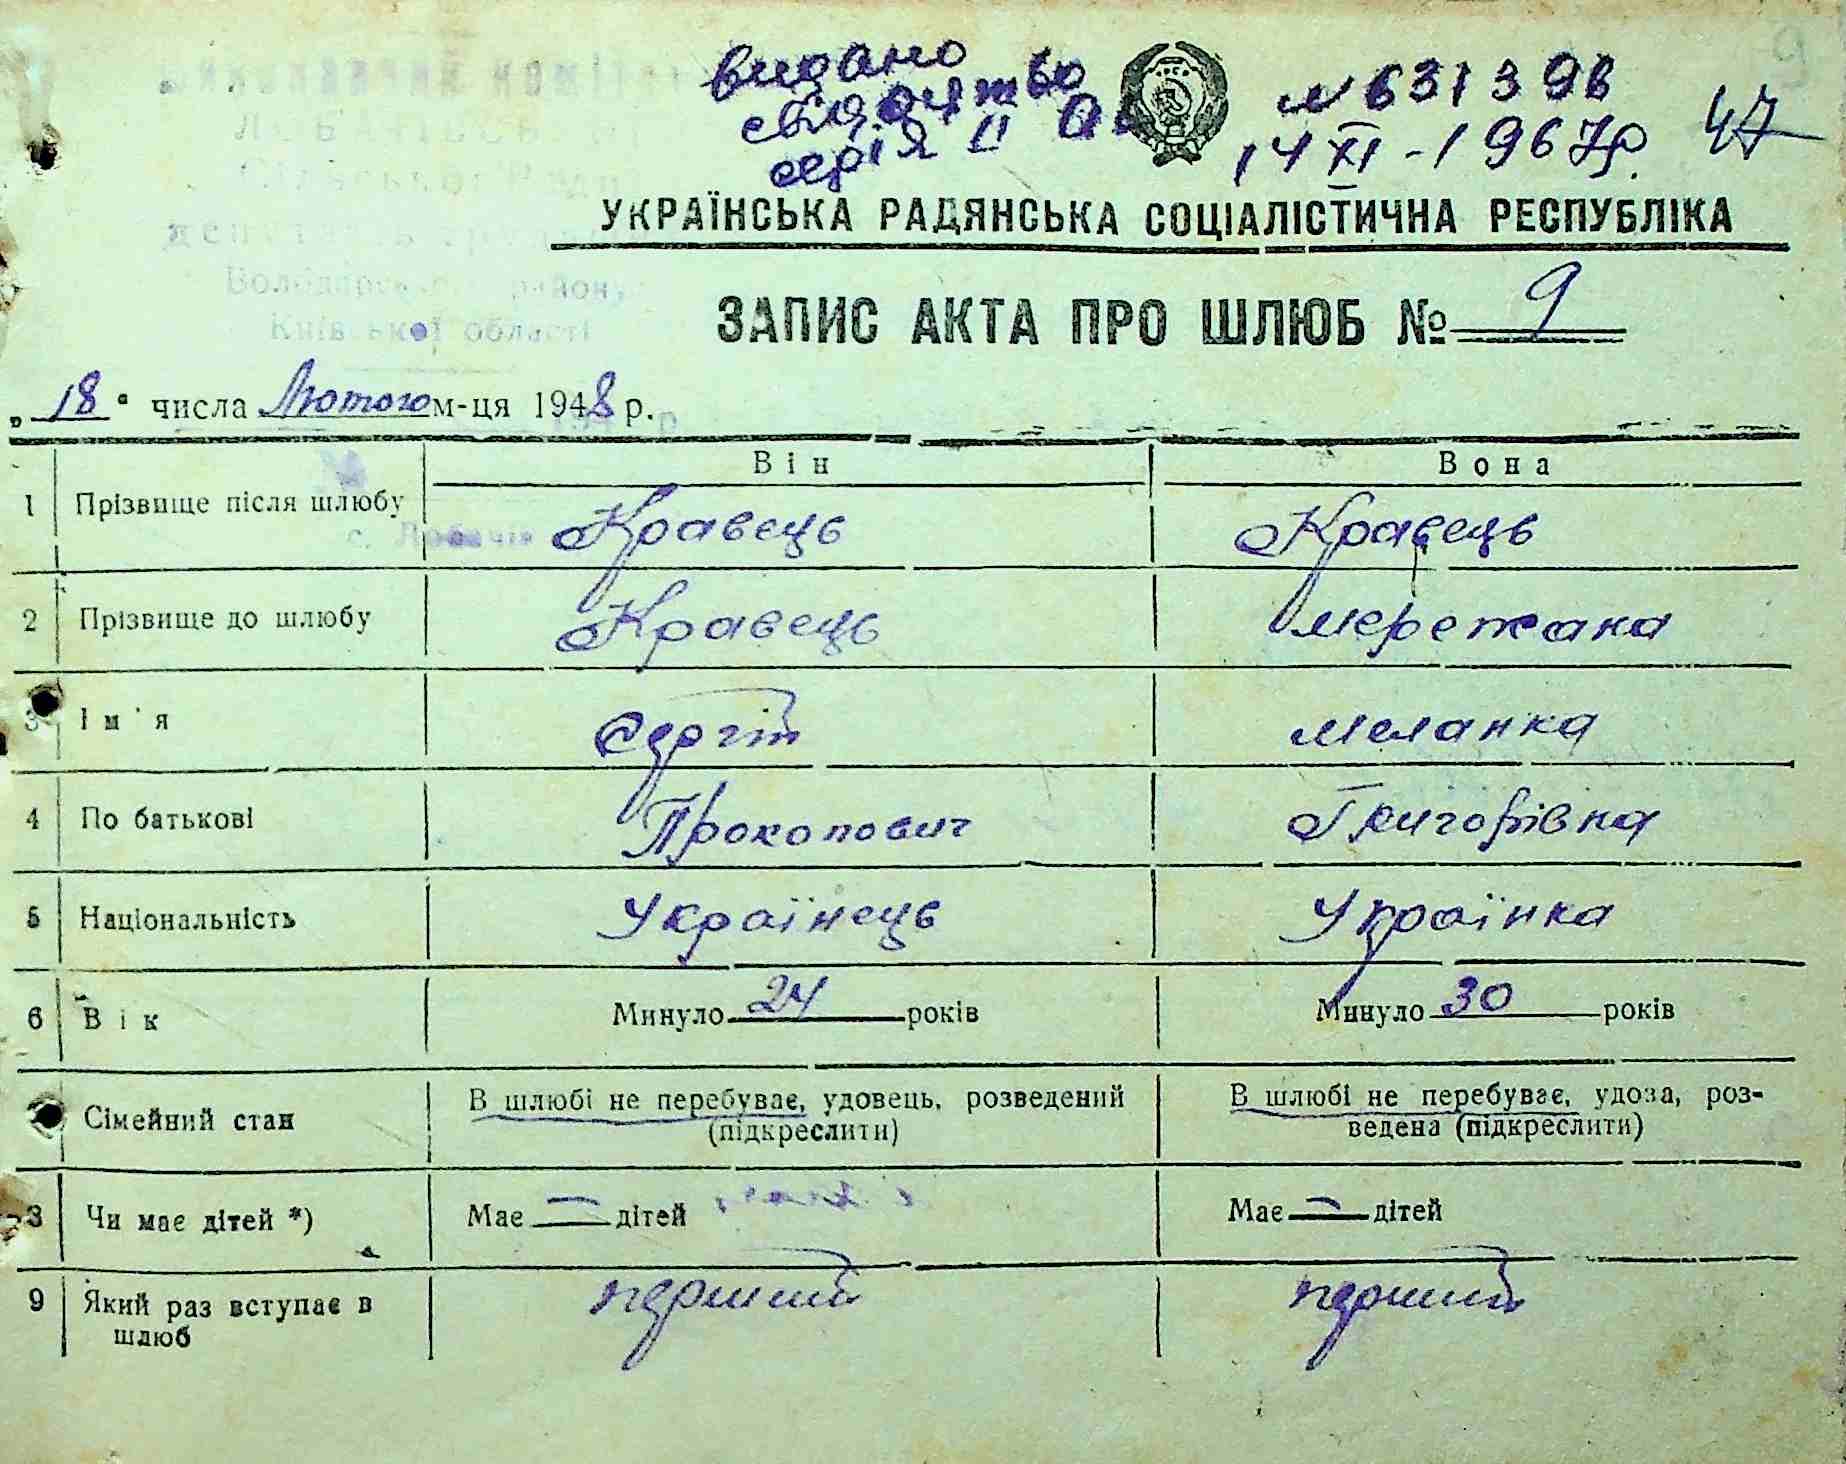 видано
свідоцтво
серія II
N 631396
14 XI - 1967р.
47
УКРАЇНСЬКА РАДЯНСЬКА СОЦІАЛІСТИЧНА РЕСПУБЛІКА
ЗАПИС АКТА ПРО ШЛЮБ № 9
„18“ числа Лютого м-ця 1948 р.
Володарського району,
Київської області
Він Вона
1 Прізвище після шлюбу Кравець Кравець
с. Лобачів
2 Прізвище до шлюбу Кравець Мережана
3 Ім'я Сергій Меланка
4 По батькові Прокопович Григорівна
5 Національність Українець Українка
6 Вік Минуло 24 років Минуло 30 років
Сімейний стан В шлюбі не перебуває, удовець, розведений (підкреслити) В шлюбі не перебуває, удова, роз-
ведена (підкреслити)
8 Чи має дітей *) Має — дітей Має — дітей
9 Який раз вступає в перший перший
шлюб